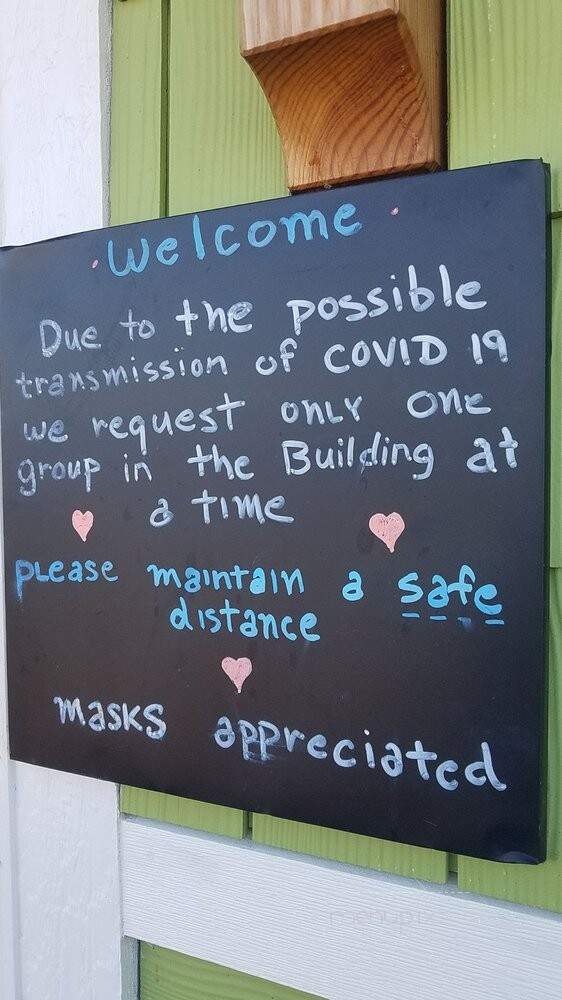 Welcome
Due to the possible
transmission of COVID 19
we request only one
group in the Building at
a time
please maintain a safe
distance
masks appreciated